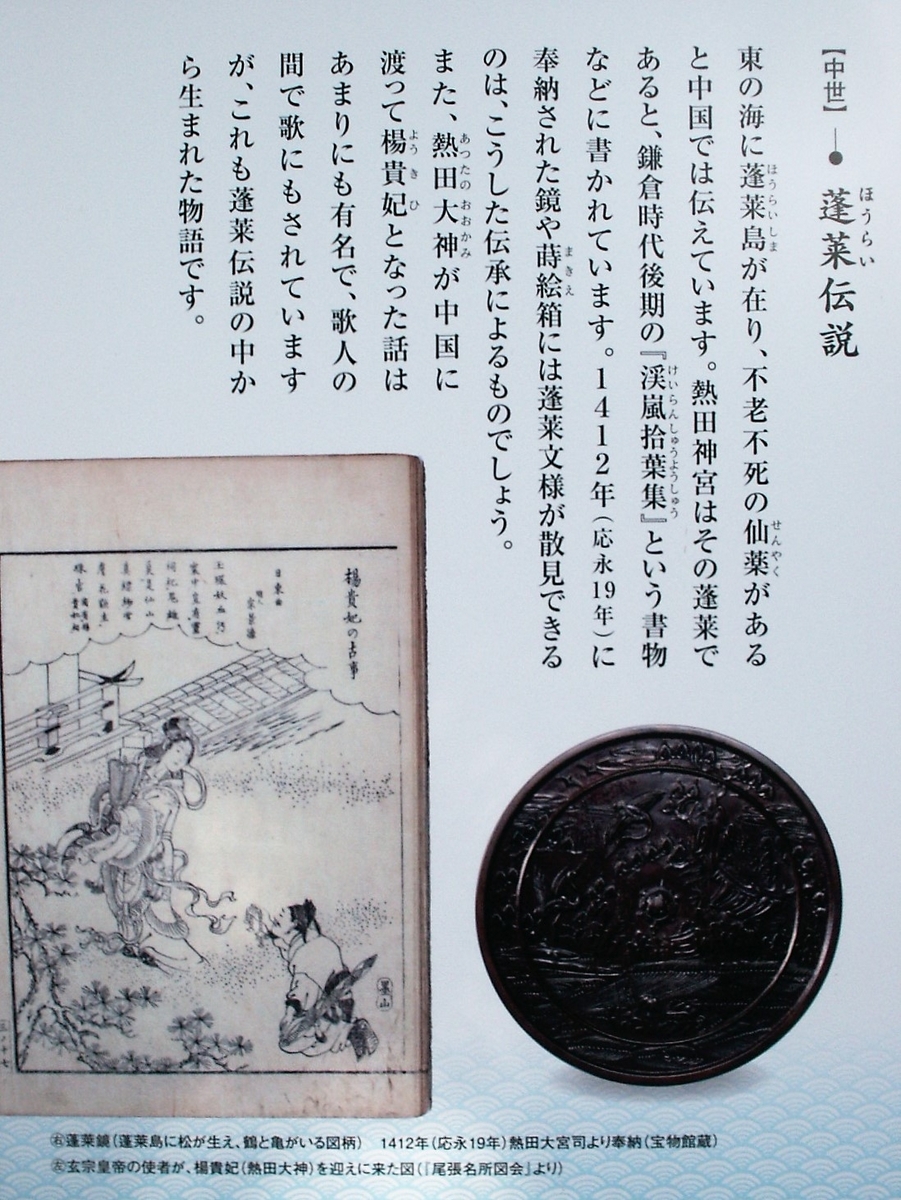 【中世】 蓬莱伝説
ほうらい
東の海に蓬莱島が在り、不老不死の仙薬がある
ほうらいしま せんやく
と中国では伝えています。熱田神宮はその蓬莱で
あると、鎌倉時代後期の『渓嵐拾葉集』という書物
けいらんしゅうようしゅう
などに書かれています。1412年(応永19年)に
奉納された鏡や蒔絵箱には蓬莱文様が散見できる
まきえ
のは、こうした伝承によるものでしょう。
また、熱田大神が中国に
あつたのおおかみ
渡って楊貴妃となった話は
ようきひ
あまりにも有名で、歌人の
間で歌にもされています
が、これも蓬莱伝説の中か
ら生まれた物語です。
楊貴妃の古事
日東曲
墨山
㊨蓬莱鏡(蓬莱島に松が生え、鶴と亀がいる図柄) 1412年(応永19年)熱田大宮司より奉納(宝物館蔵)
㊧玄宗皇帝の使者が、楊貴妃(熱田大神)を迎えに来た図(『尾張名所図会』より)